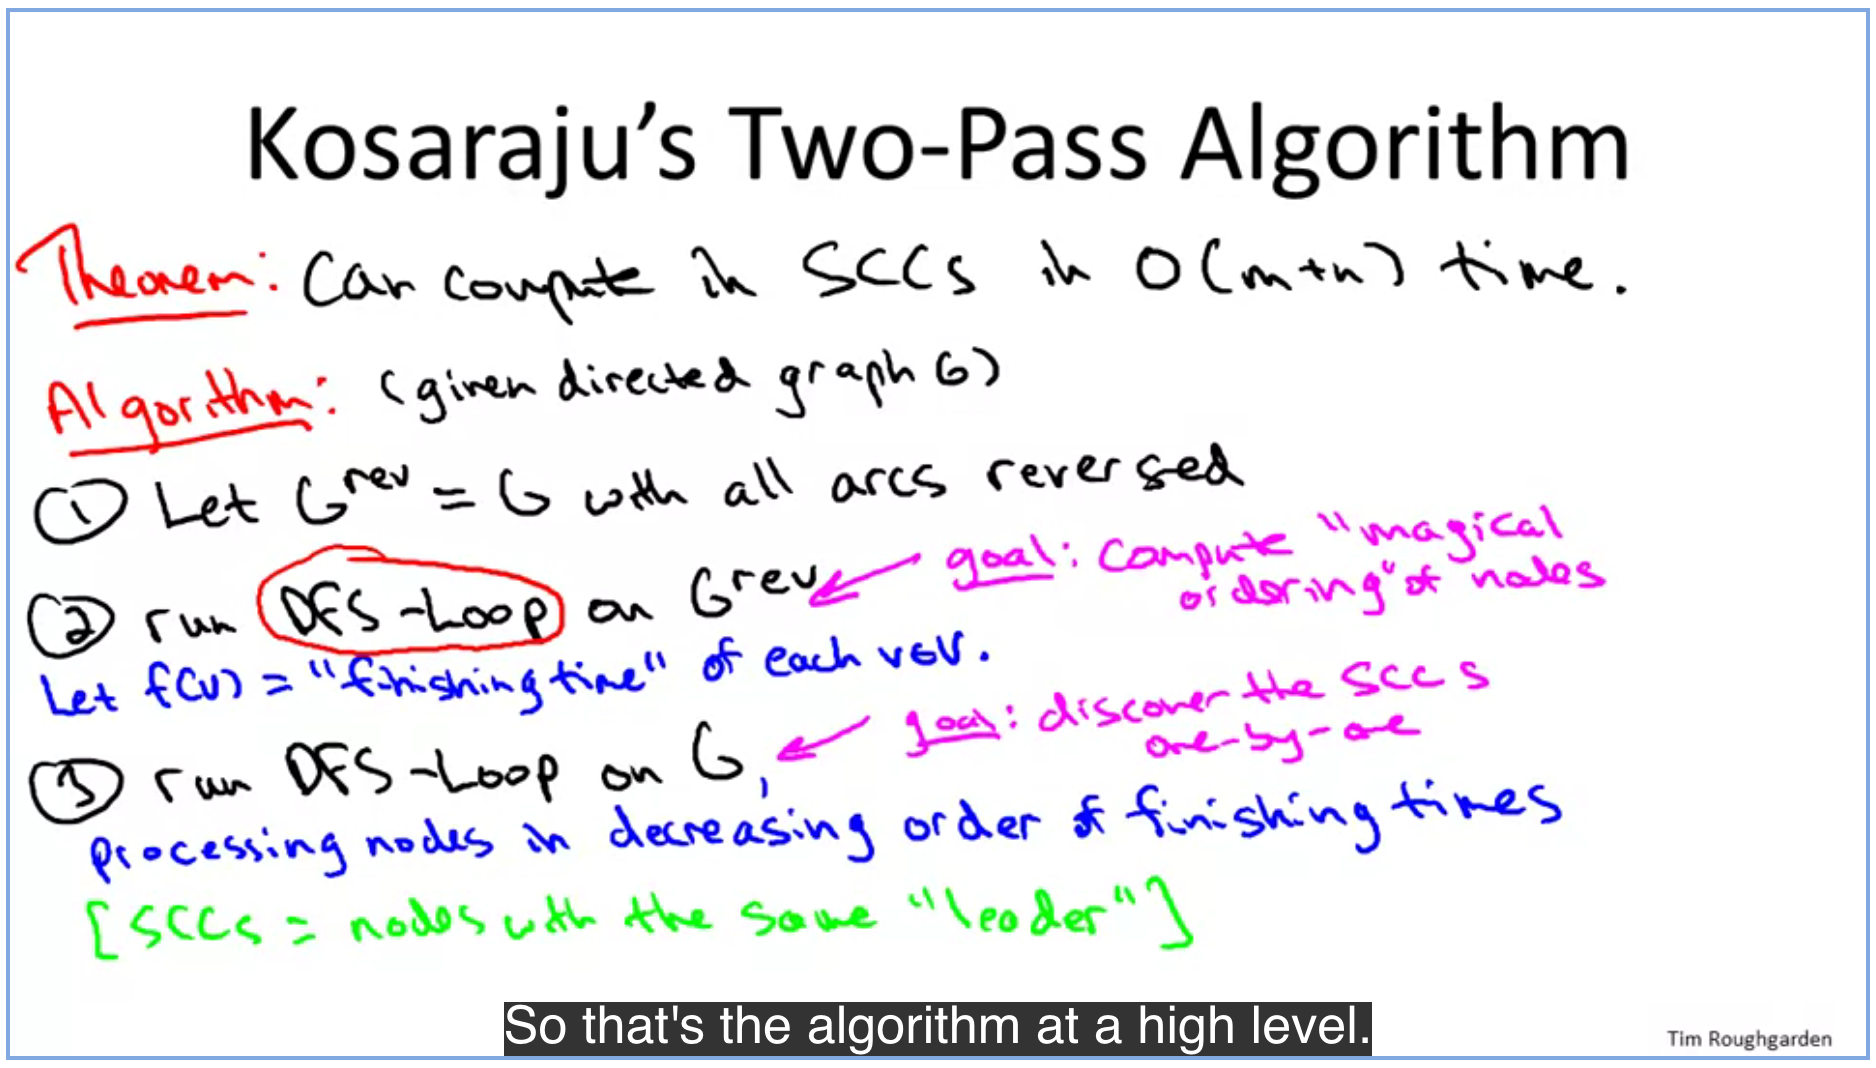 Kosaraju's Two-Pass Algorithm
Theorem: Can compute in SCCs in O(m+n) time.
Algorithm: (given directed graph G)
① Let G^rev = G with all arcs reversed
② run DFS-Loop on G^rev
goal: compute "magical
ordering" of nodes
Let f(v) = "finishing time" of each v∈V.
③ run DFS-Loop on G,
goal: discover the SCCs
one-by-one
processing nodes in decreasing order of finishing times
[SCCs = nodes with the same "leader"]
So that's the algorithm at a high level.
Tim Roughgarden